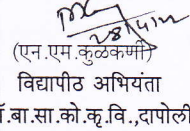 28/4/22
(एन.एम.कुळकर्णी)
विद्यापीठ अभियंता
बा.सा.को.कृ.वि.,दापोली